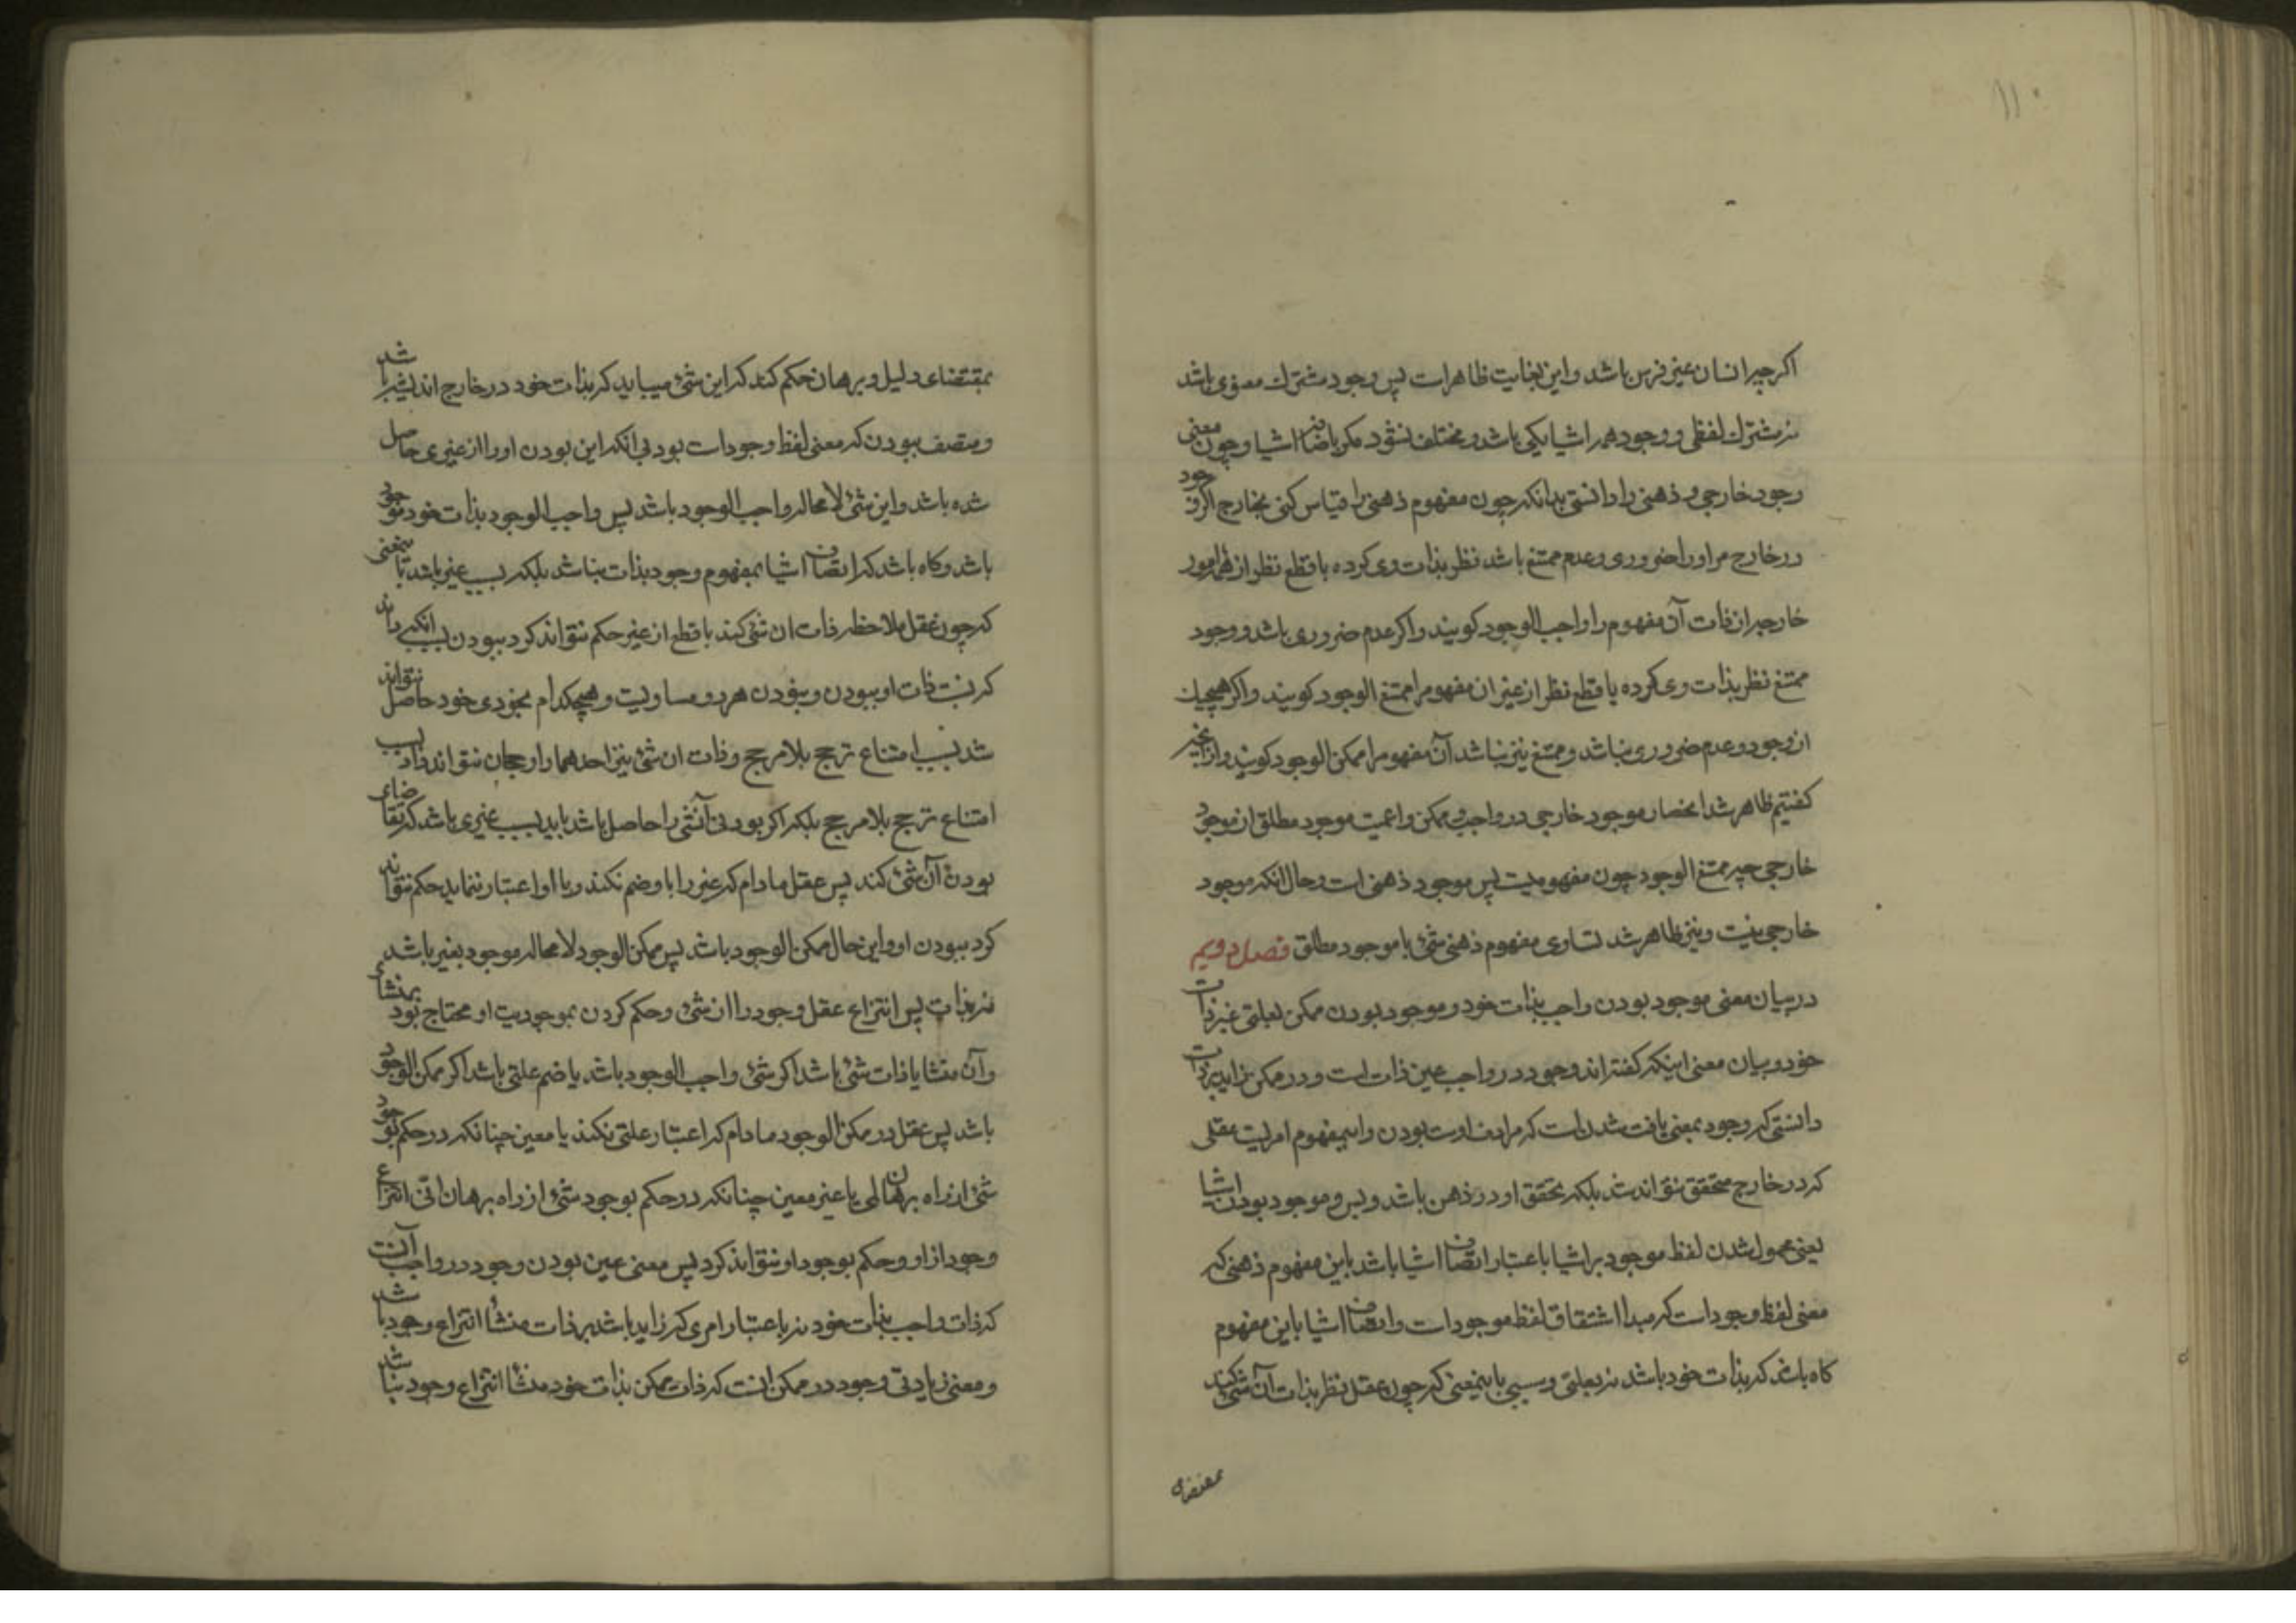 ۱۱۰
اکرچه انسان غیر فرس باشد و این بغایت ظاهرات پس وجود مشترك معنوی باشد
نه مشترك لفظی و وجود همه اشیا یکی باشد و مختلف نشود مکر باضافه اشیا و چون معنی
وجود خارجی و ذهنی را دانستی بدانکه چون مفهوم ذهنی را قیاس کنی بخارج اکر وجود
در خارج مر او را ضروری و عدم ممتنع باشد نظر بذات وی کرده با قطع نظر از همه امور
خارجه از ذات آن مفهوم را واجب الوجود کویند و اکر عدم ضروری باشد و وجود
ممتنع نظر بذات وی کرده با قطع نظر از غیر ان مفهوم را ممتنع الوجود کویند و اکر هیچیك
از وجود و عدم ضروری نباشد و ممتنع نیز نباشد آن مفهوم را ممکن الوجود کویند و از انچه
کفتیم ظاهر شد انحصار موجود خارجی در واجب و ممکن و اعمیت موجود مطلق از موجود
خارجی چه ممتنع الوجود چون مفهومیت پس موجود ذهنی است و حال انکه موجود
خارجی نیست و نیز ظاهر شد تساوی مفهوم ذهنی شئ با موجود مطلق فصل دویم
در بیان معنی موجود بودن واجب بذات خود و موجود بودن ممکن بعلتی غیر ذات
خود و بیان معنی اینکه کفته اند وجود در واجب عین ذات است و در ممکن زاید بر ذات
دانستی که وجود بمعنی یافت شدن است که مرادف اوست بودن و این مفهوم امریست عقلی
که در خارج محقق نتواند شد بلکه تحقق او در ذهن باشد و بس و موجود بودن اشیا
یعنی محمول شدن لفظ موجود بر اشیا باعتبار اتصاف اشیا باشد باین مفهوم ذهنی که
معنی لفظ وجود است که مبدا اشتقاق لفظ موجود است و اتصاف اشیا باین مفهوم
کاه باشد که بذات خود باشد نه بعلتی و سببی باینمعنی که چون عقل نظر بذات آن شئ کند
بمقتضای
بمقتضای دلیل و برهان حکم کند که این شئ میباید که بذات خود در خارج اند باشد
و متصف ببودن که معنی لفظ وجود است بود بی انکه این بودن او را از غیری حاصل
شده باشد و این شئ لا محاله واجب الوجود باشد پس واجب الوجود بذات خود موجود
باشد و کاه باشد که اتصاف اشیا بمفهوم وجود بذات نباشد بلکه بسبب غیر باشد باینمعنی
که چون عقل ملاحظه ذات ان شئ کند با قطع از غیر حکم نتواند کرد ببودن بسبب انکه داند
که نسبت ذات او ببودن و نبودن هر دو مساویست و هیچکدام بخودی خود حاصل نتواند
شد بسبب امتناع ترجح بلا مرجح و ذات ان شئ نیز احدهما را رجحان نتواند داد بسبب
امتناع ترجح بلا مرجح بلکه اکر بودن آنشئ را حاصل باشد باید بسبب غیری باشد که تقاضای
بودن آن شئ کند پس عقل مادام که غیر را با او ضم نکند و با او اعتبار ننماید حکم نتواند
کرد ببودن او و این حال ممکن الوجود باشد پس ممکن الوجود لا محاله موجود بغیر باشد
نه بذات پس انتزاع عقل وجود را از شئ و حکم کردن بموجودیت او محتاج بود بمنشاء
و آن منشا یا ذات شئ باشد اکر شئ واجب الوجود باشد یا ضم علتی باشد اکر ممکن الوجود
باشد پس عقل در ممکن الوجود مادام که اعتبار علتی نکند یا معین چنانکه در حکم بوجود
شئ از راه برهان لمی یا غیر معین چنانکه در حکم بوجود شئ از راه برهان انّی انتزاع
وجود از او و حکم بوجود او نتواند کرد پس معنی عین بودن وجود در واجب آنست
که ذات واجب بذات خود نه باعتبار امری که زاید باشد بر ذات منشأ انتزاع وجود باشد
و معنی زیادتی وجود در ممکن انست که ذات ممکن بذات خود منشأ انتزاع وجود نباشد